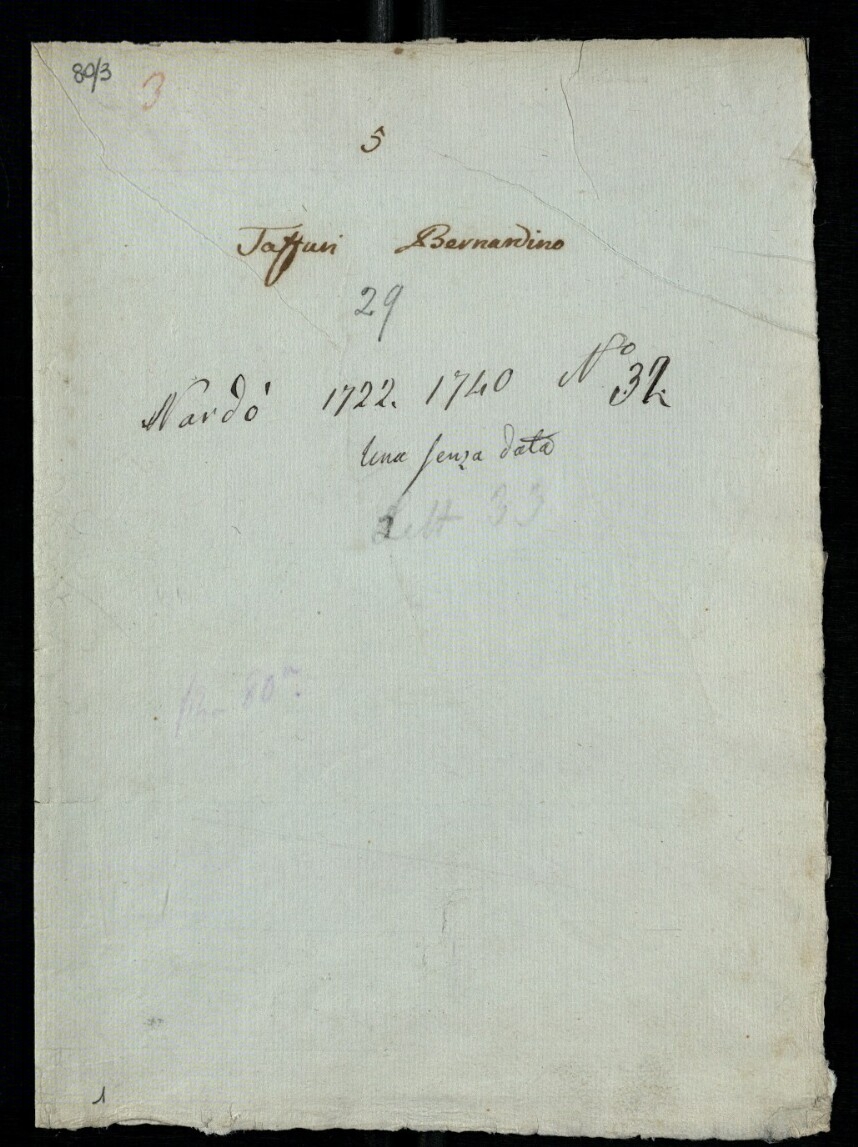 80/3
3
5
Taffuri Bernardino
29
Nardò 1722. 1740 No 32
Una senza data
Lett 33
1